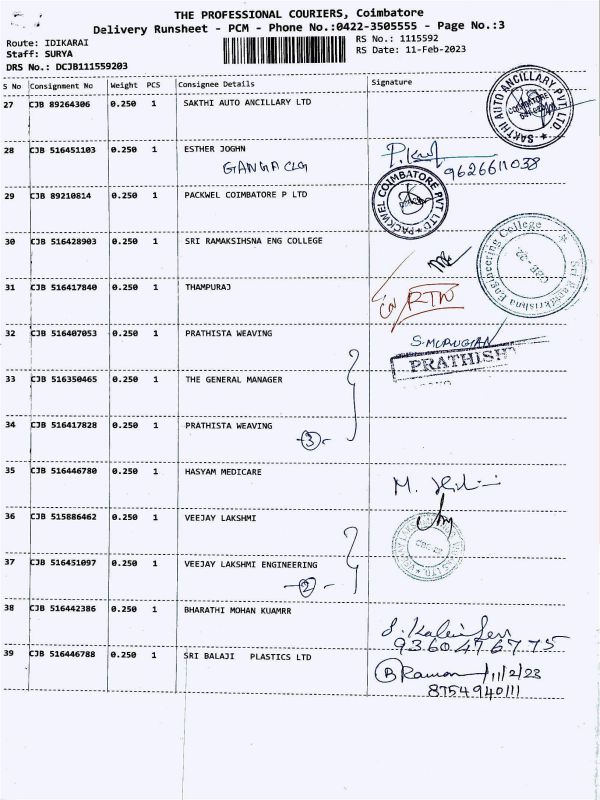 THE PROFESSIONAL COURIERS, Coimbatore
Delivery Runsheet - PCM - Phone No.:0422-3505555 - Page No.:3
Route: IDIKARAI
Staff: SURYA
DRS No.: DCJB111559203
RS No.: 1115592
RS Date: 11-Feb-2023
S No Consignment No Weight PCS Consignee Details Signature
27 CJB 89264306 0.250 1 SAKTHI AUTO ANCILLARY LTD
SAKTHI AUTO ANCILLARY PVT LTD
28 CJB 516451103 0.250 1 ESTHER JOGHN
GANGA CLG
9626611038
29 CJB 89210814 0.250 1 PACKWEL COIMBATORE P LTD
PACKWEL COIMBATORE PVT LTD
30 CJB 516428903 0.250 1 SRI RAMAKSIHSNA ENG COLLEGE
Sri Ramakrishna Engineering College
CBE-22
31 CJB 516417840 0.250 1 THAMPURAJ
RTN
32 CJB 516407053 0.250 1 PRATHISTA WEAVING
S.MURUGIAN
PRATHISH
33 CJB 516350465 0.250 1 THE GENERAL MANAGER
34 CJB 516417828 0.250 1 PRATHISTA WEAVING
3
35 CJB 516446780 0.250 1 HASYAM MEDICARE
M.
36 CJB 515886462 0.250 1 VEEJAY LAKSHMI
37 CJB 516451097 0.250 1 VEEJAY LAKSHMI ENGINEERING
2
38 CJB 516442386 0.250 1 BHARATHI MOHAN KUAMRR
9360476775
39 CJB 516446788 0.250 1 SRI BALAJI PLASTICS LTD
B Raman 11/2/23
8754940111